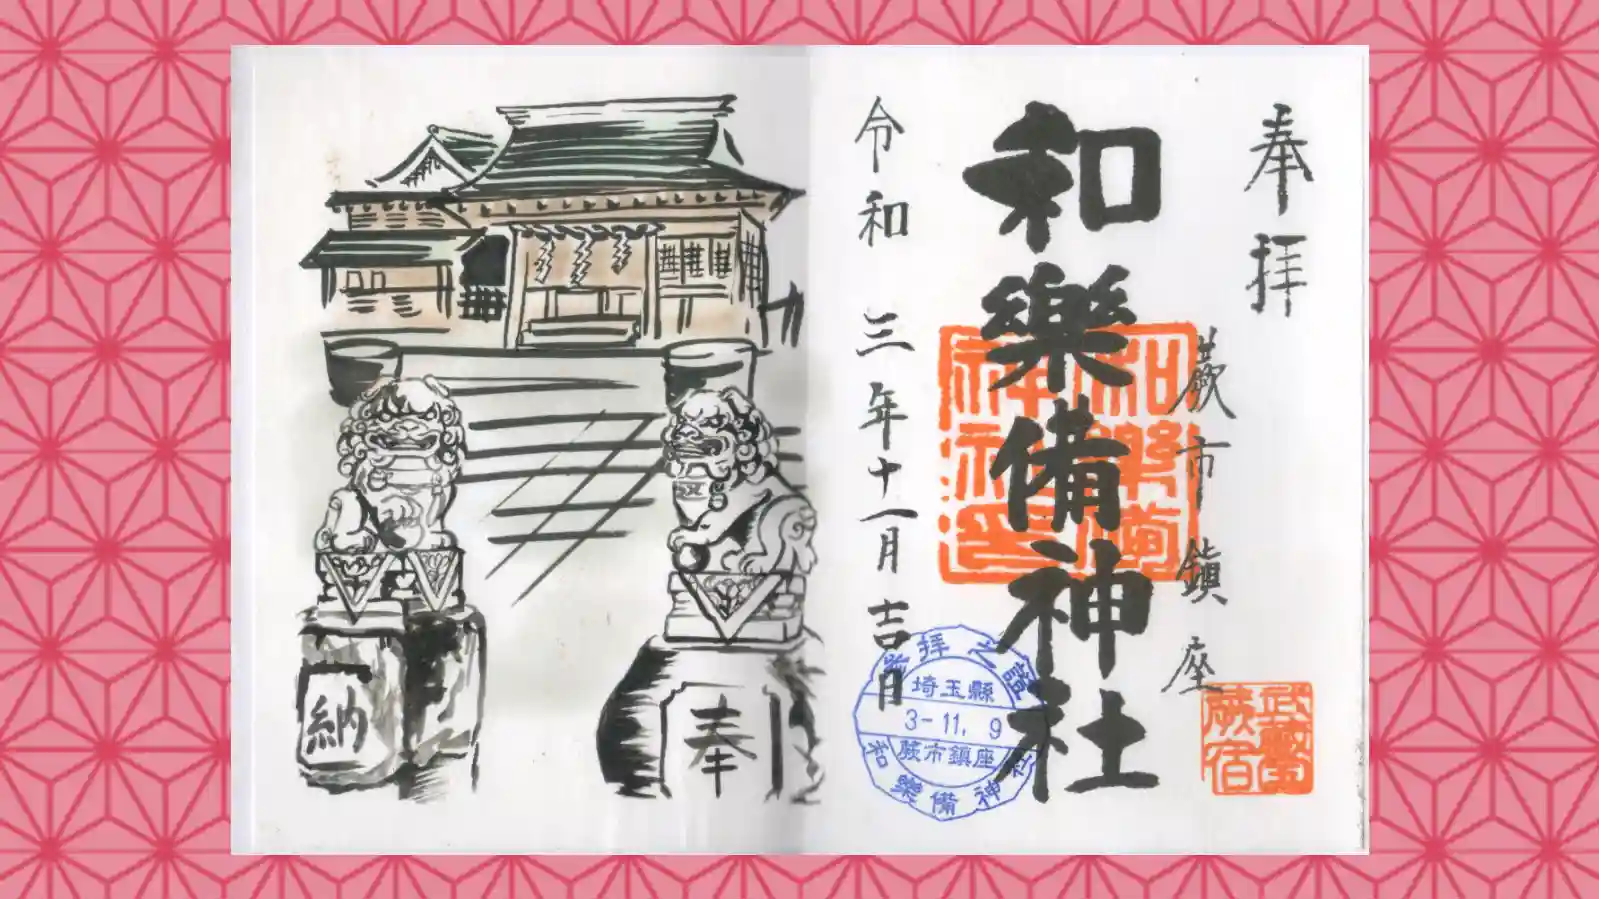 奉拝
蕨市鎮座
武蔵
蕨宿
和樂備神社
和樂備
神社
令和 三年十一月 吉日
拝之證
埼玉縣
3-11. 9
蕨市鎮座
和樂備神社
奉
納